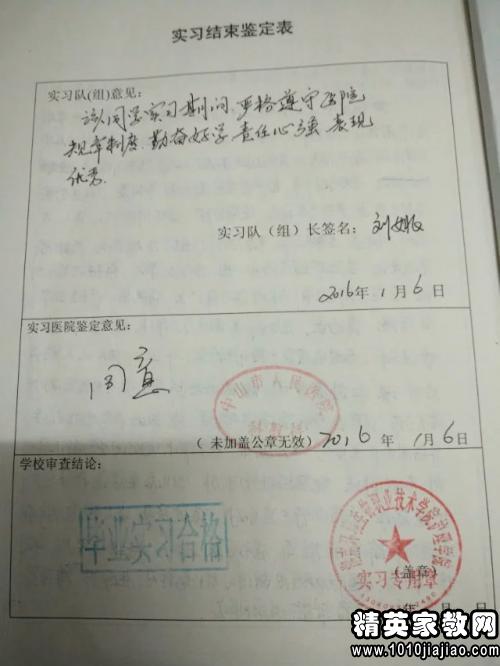 实习结束鉴定表
实习队(组)意见:
该同学实习期间 严格遵守医院
规章制度 勤奋好学 责任心强 表现
优秀.
实习队（组）长签名:
2016年 1 月 6 日
实习医院鉴定意见:
同意
中山市人民医院
科教科
( 未加盖公章无效) 2016 年 1月6日
学校审查结论:
毕业实习合格
职业技术学院护理学院
（盖章）
实习专用章
年 月 日
精英家教网
www.1010jiajiao.com